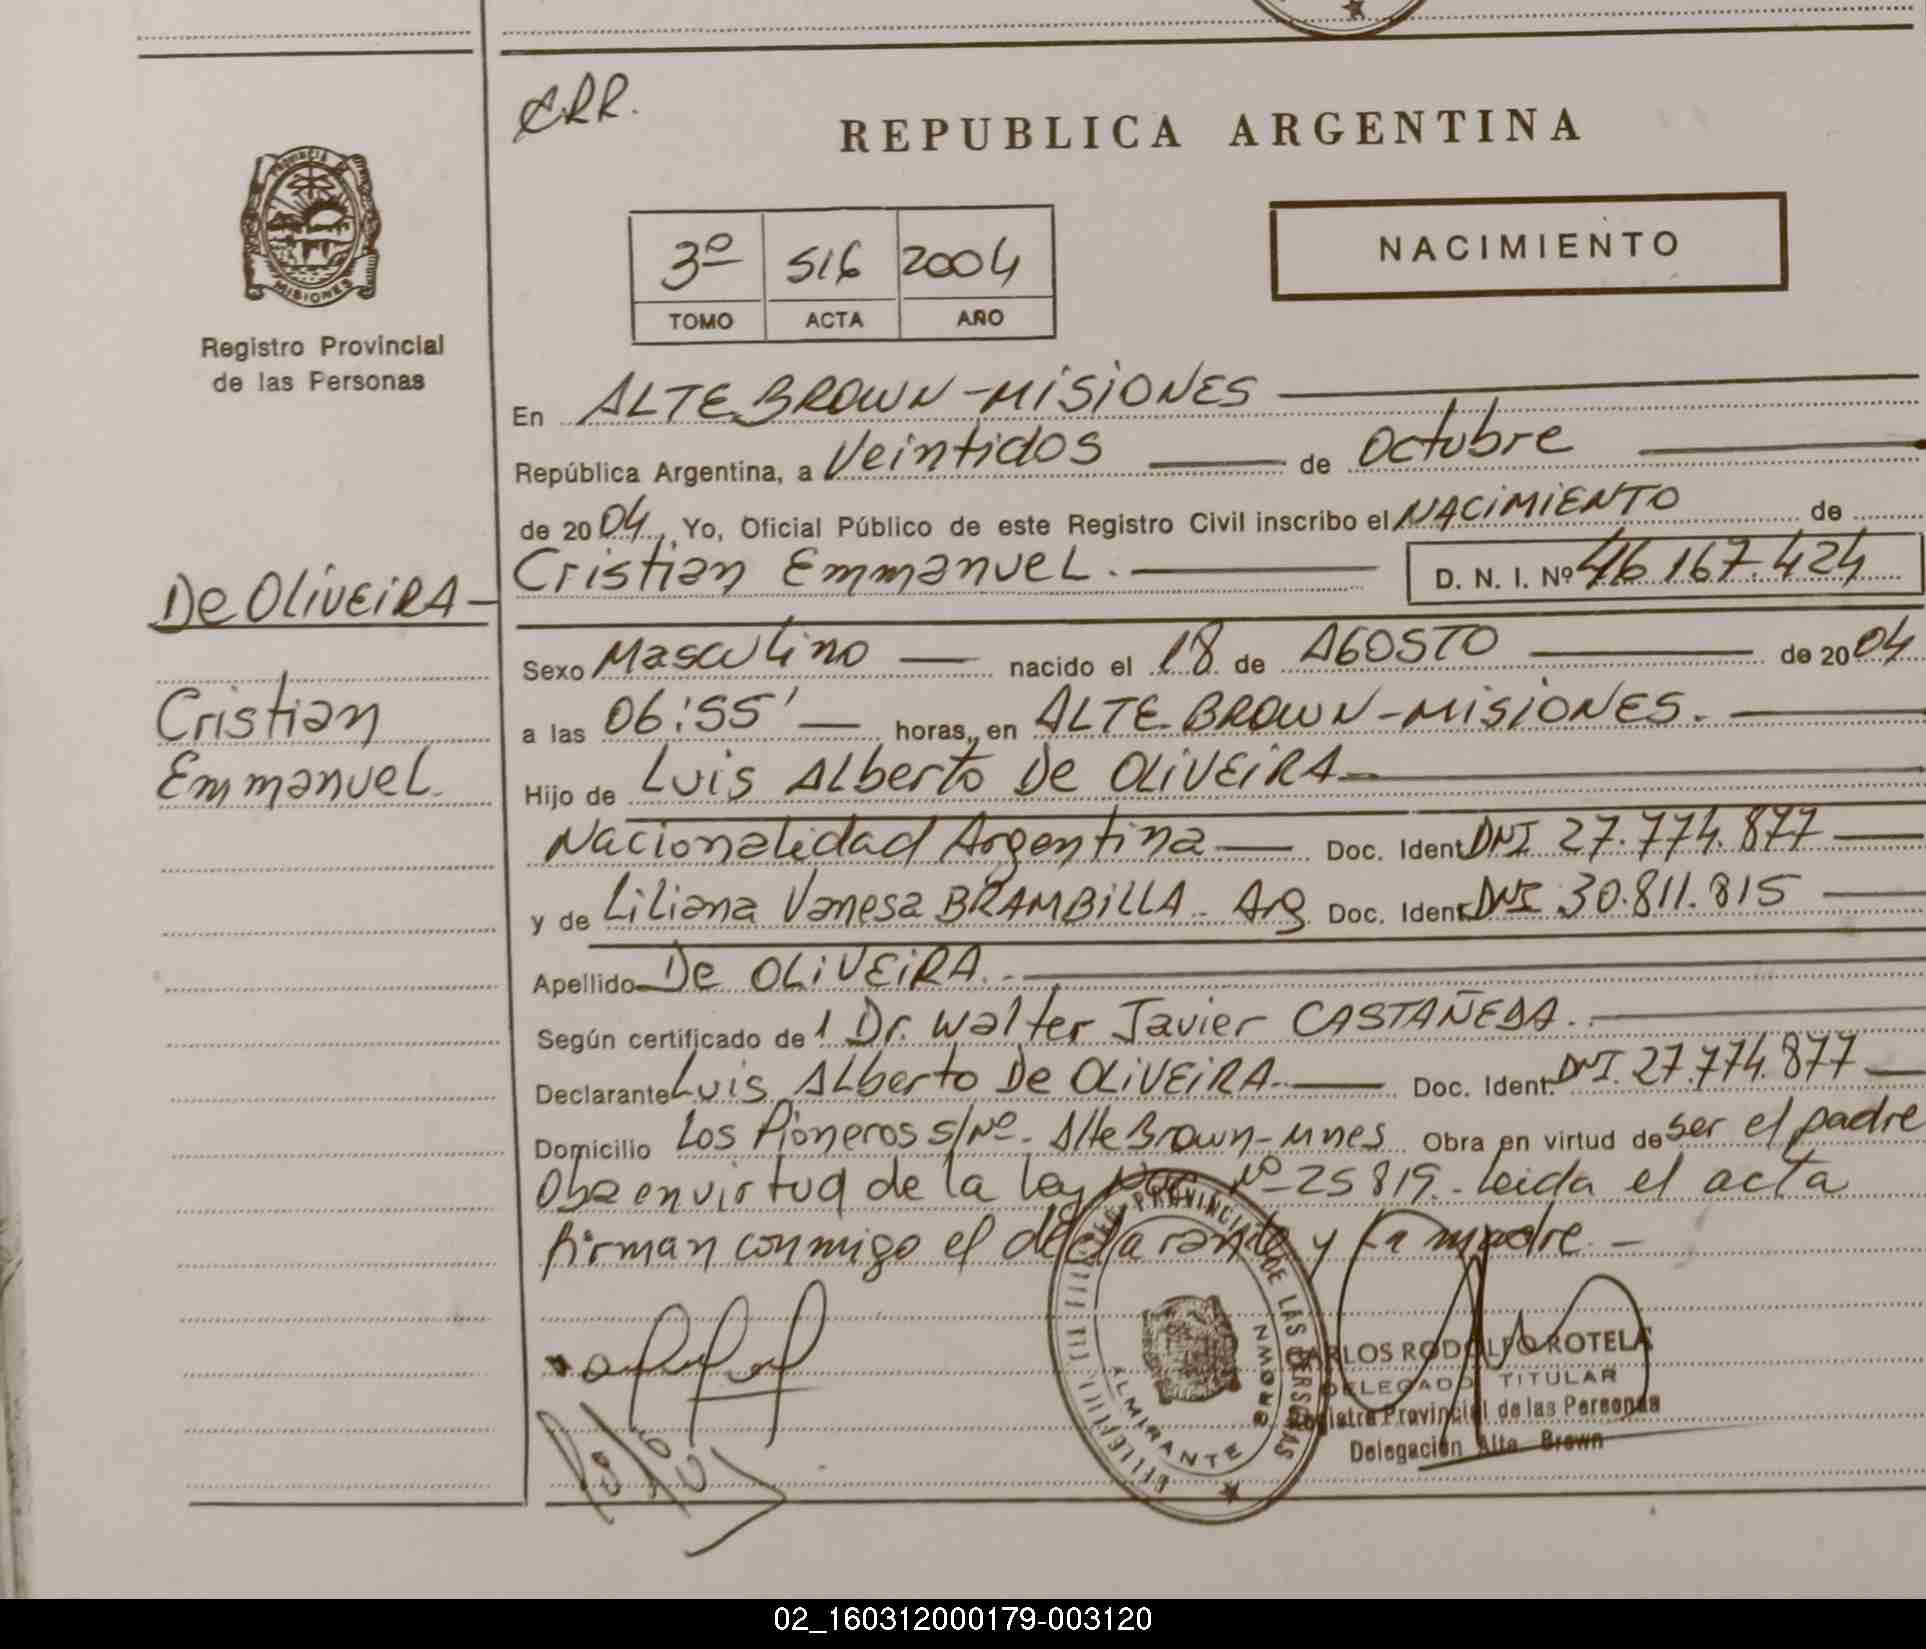 CRR.
REPUBLICA ARGENTINA
PROVINCIA DE MISIONES
3º 516 2004
NACIMIENTO
TOMO ACTA AÑO
Registro Provincial
de las Personas
En ALTE BROWN - MISIONES
República Argentina, a Veintidos de Octubre
de 2004, Yo, Oficial Público de este Registro Civil inscribo el NACIMIENTO de
Cristian Emmanuel. D. N. I. Nº 46 167.424
De OLIVEIRA
Sexo Masculino nacido el 18 de AGOSTO de 2004
Cristian
a las 06:55' horas, en ALTE BROWN - MISIONES.
Emmanuel.
Hijo de Luis Alberto De OLIVEIRA
Nacionalidad Argentina Doc. Ident. DNI 27.774.877
y de Liliana Vanesa BRAMBILLA - Arg Doc. Ident. DNI 30.811.815
Apellido De OLIVEIRA.
Según certificado de 1 Dr. Walter Javier CASTAÑEDA.
Declarante Luis Alberto De OLIVEIRA Doc. Ident. DNI. 27.774.877
Domicilio Los Pioneros s/Nº - Alte Brown - Mnes Obra en virtud de ser el padre
Obra en virtud de la ley Nº 25819 - Leida el acta
firman conmigo el declarante y la madre -
PROVINCIAL DE LAS PERSONAS
ALMIRANTE BROWN
CARLOS RODOLFO ROTELA
DELEGADO TITULAR
Registro Provincial de las Personas
Delegación Alte. Brown
02_160312000179-003120